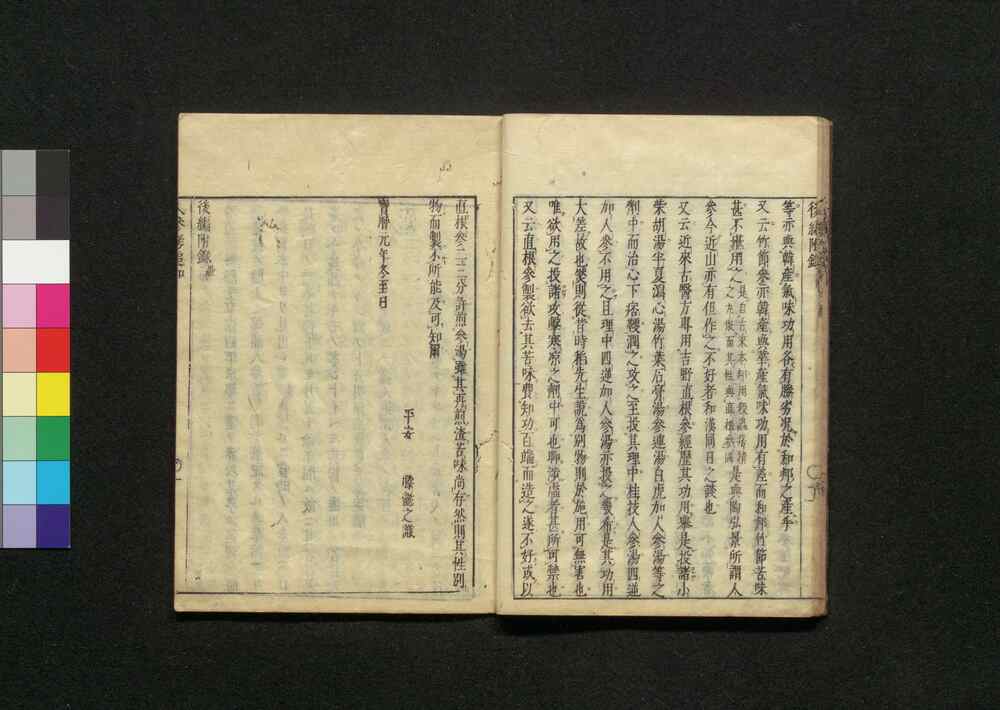 後編附錄
等亦與韓産氣味功用各有勝劣况於和邦之産乎
又云竹節參亦韓産與華産氣味功用有差而和邦竹節苦味
甚不堪用之是與陶弘景所謂人
參今近山亦有但作之不好者和漢同日之談也
又云近來古醫方專用吉野直根參經歷其功用舉是投諸小
柴胡湯半夏瀉心湯竹葉石膏湯參連湯白虎加人參湯等之
劑中而治心下痞鞕潤之攻之至投其理中桂枝人參湯四逆
加人參不用之且理中四逆加人參湯亦投之要希是其功用
大差故也爰則從昔時稻先生說爲別物則於施用可無害也
唯欲用之投諸攻擊寒凉之劑中可也聊涉虛者甚所可禁也
又云直根參製欲去其苦味費知功百端而造之遂不好或以
直根參二三分許煎參湯雖其再煎渣苦味尚存然則其性別
物而製不所能及可知爾
寶曆元年冬至日
平安
之識
後編附錄